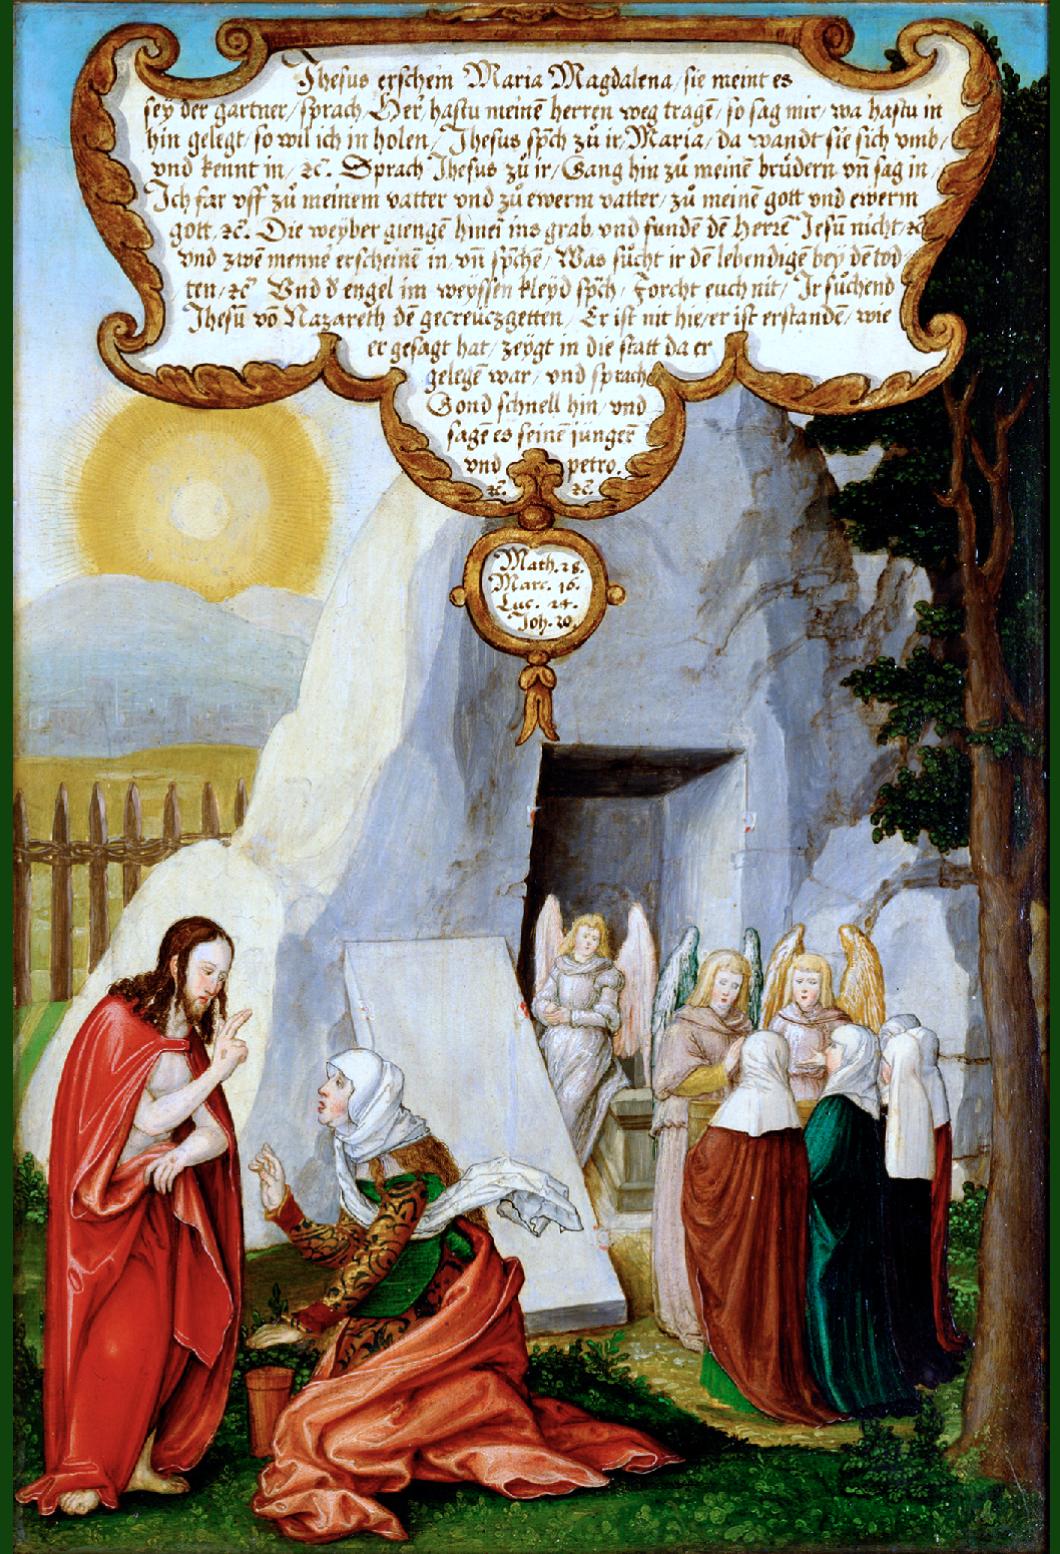 Jhesus erschein Maria Magdalena/ sie meint es
sey der gartner/ sprach/ Her/ hastu meinē herren weg tragē/ so sag mir/ wa hastu in
hin gelegt/ so wil ich in holen/ Jhesus sp̄ch zů ir/ Maria/ da wandt sie sich vmb/
vnd kennt in/ ꝛc. Sprach Jhesus zů ir/ Gang hin zů meinē brůdern vn̄ sag in/
Ich far vff zů meinem vatter vnd zů ewerm vatter/ zů meinē gott vnd ewerm
gott, ꝛc. Die weyber giengē hinei ins grab vnd fundē dē Herrē Jesū nicht/ ꝛc
vnd zwēn menne erscheinē in/ vn̄ sp̄chē/ Was sůcht ir dē lebendigē bey dē tod-
ten/ ꝛc Vnd d engel im weyssen kleyd sp̄ch/ Forcht euch nit/ Ir sůchend
Jhesū vō Nazareth dē gecreuczgetten/ Er ist nit hie/ er ist erstandē/ wie
er gesagt hat/ zeygt in die statt da er
gelegē war/ vnd sprach
Gond schnell hin/ vnd
sagē es seinē jungerē
vnd petro.
ꝛc. ꝛc.
Math. 28.
Marc. 16.
Luc. 24.
Joh. 20.